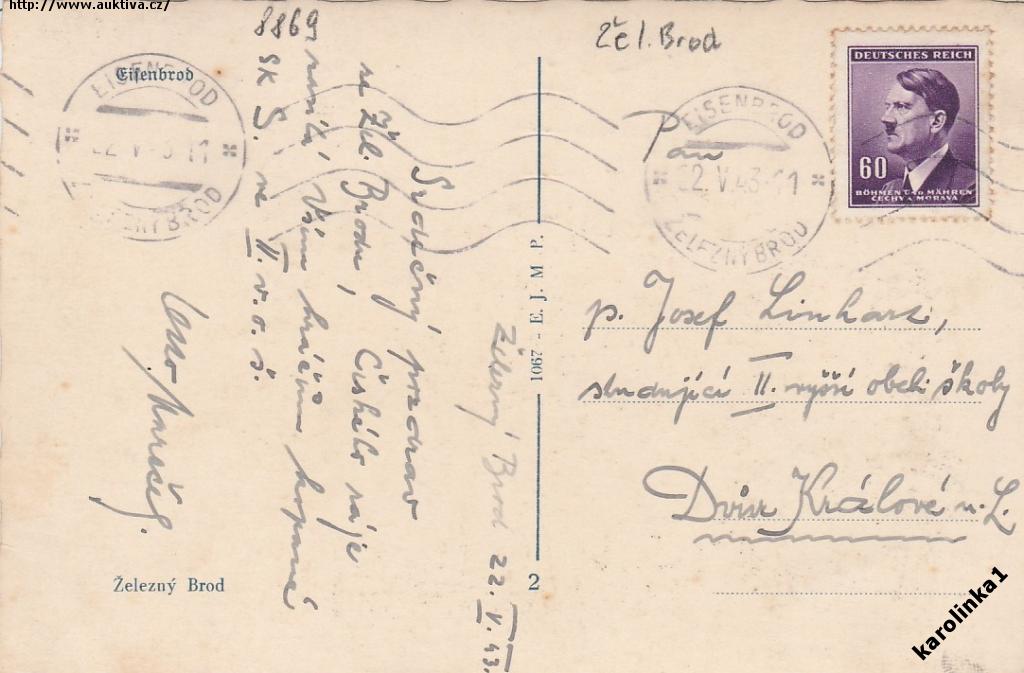 http://www.auktiva.cz/
8869
Žel. Brod
Eisenbrod
EISENBROD
22.V.43-11
ŽELEZNÝ BROD
EISENBROD
22.V.43-11
ŽELEZNÝ BROD
DEUTSCHES REICH
60
BÖHMEN UND MÄHREN
ČECHY A MORAVA
Železný Brod 22.V.43.
Srdečný pozdrav
ze Žel. Brodu, Českého ráje
Všem hráčům kopané
SK S. ze II. v. o. š.
Pan
p. Josef Linhart,
studující II. vyšší obch. školy
Dvůr Králové n. L.
1067 - E. J. M. P.
2
Železný Brod
karolinka1